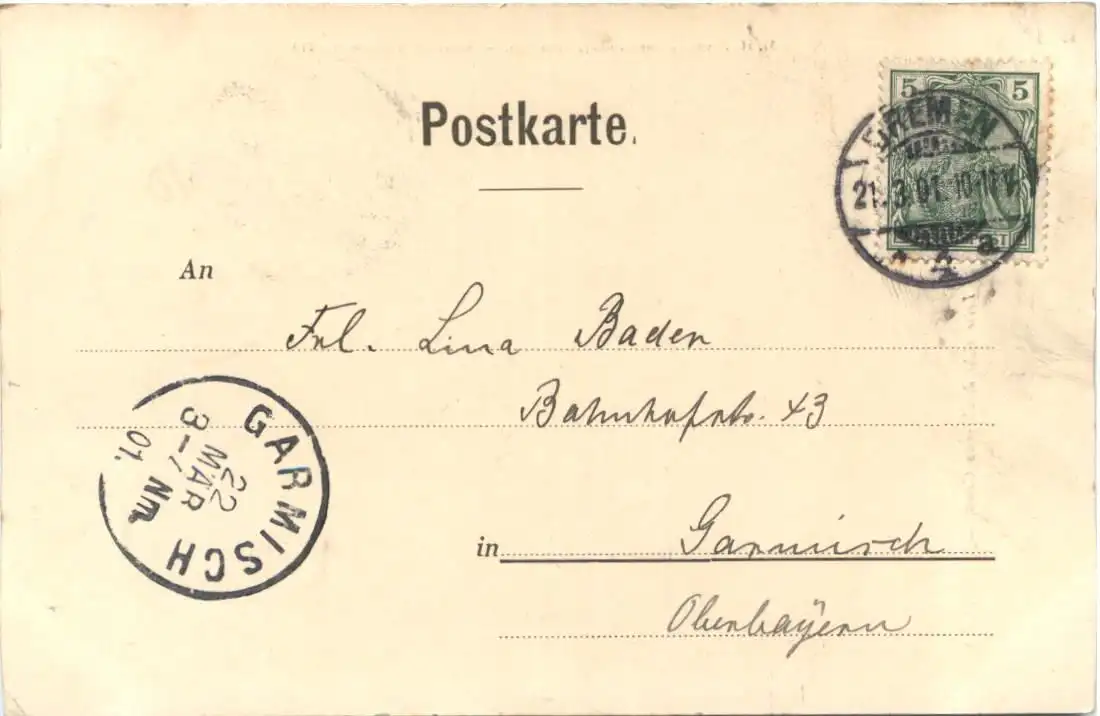 Postkarte.
5 5
BREMEN
21.3.01.10-11V
* 2 a
An
Frl. Lina Baden
Bahnhofstr. 43
in Garmisch
Oberbayern
GARMISCH
22
MAR
3-7 Nm.
01.